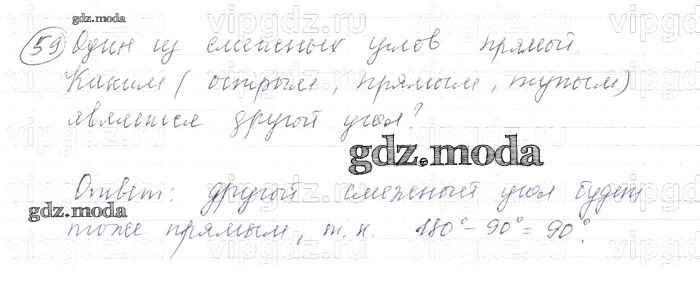 gdz.moda
59 Один из смежных углов прямой.
Каким (острым, прямым, тупым)
является другой угол?
gdz.moda
Ответ: другой смежный угол будет
gdz.moda
тоже прямым, т.к. 180° - 90° = 90°.